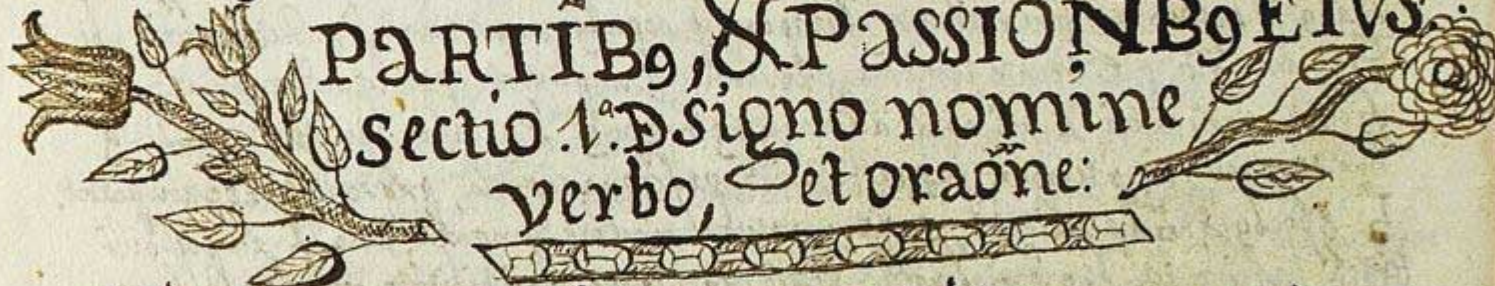 PARTIB9, & PASSIONB9 EIUS.
sectio 1.ª D signo nomine
verbo, et oraōne: